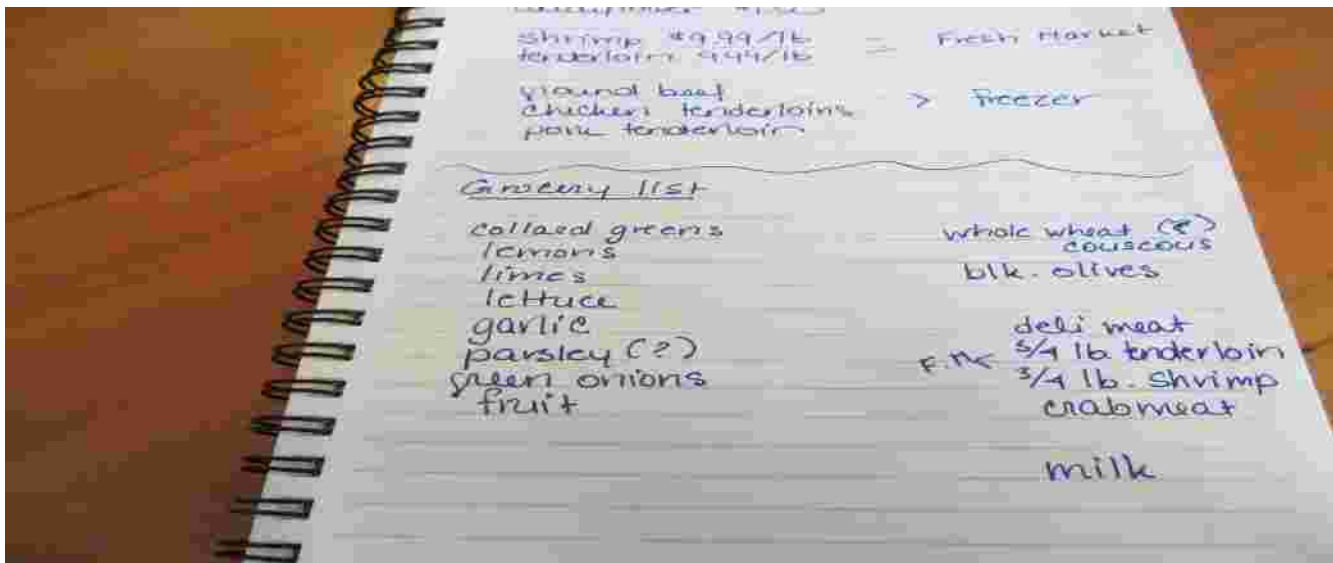 shrimp $9.99/lb = Fresh Market
tenderloin 9.99/lb
ground beef
chicken tenderloins > freezer
pork tenderloin
Grocery list
collard greens
lemons
limes
lettuce
garlic
parsley (?)
green onions
fruit
whole wheat (?)
couscous
blk. olives
deli meat
lb tenderloin
3/4 lb. shrimp
crabmeat
milk